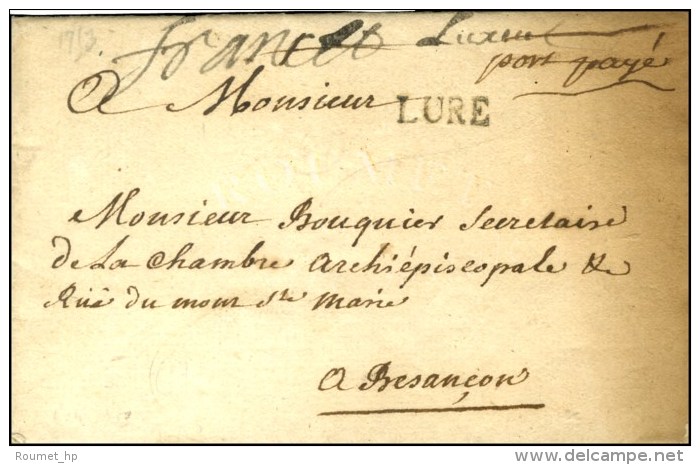 franco Luxeuil
port payé
A Monsieur
LURE
Monsieur Bouquier Secretaire
de La Chambre Archiépiscopale &c
Ruë du mont Ste Marie
A Besançon
Roumet_hp
delcampe.net